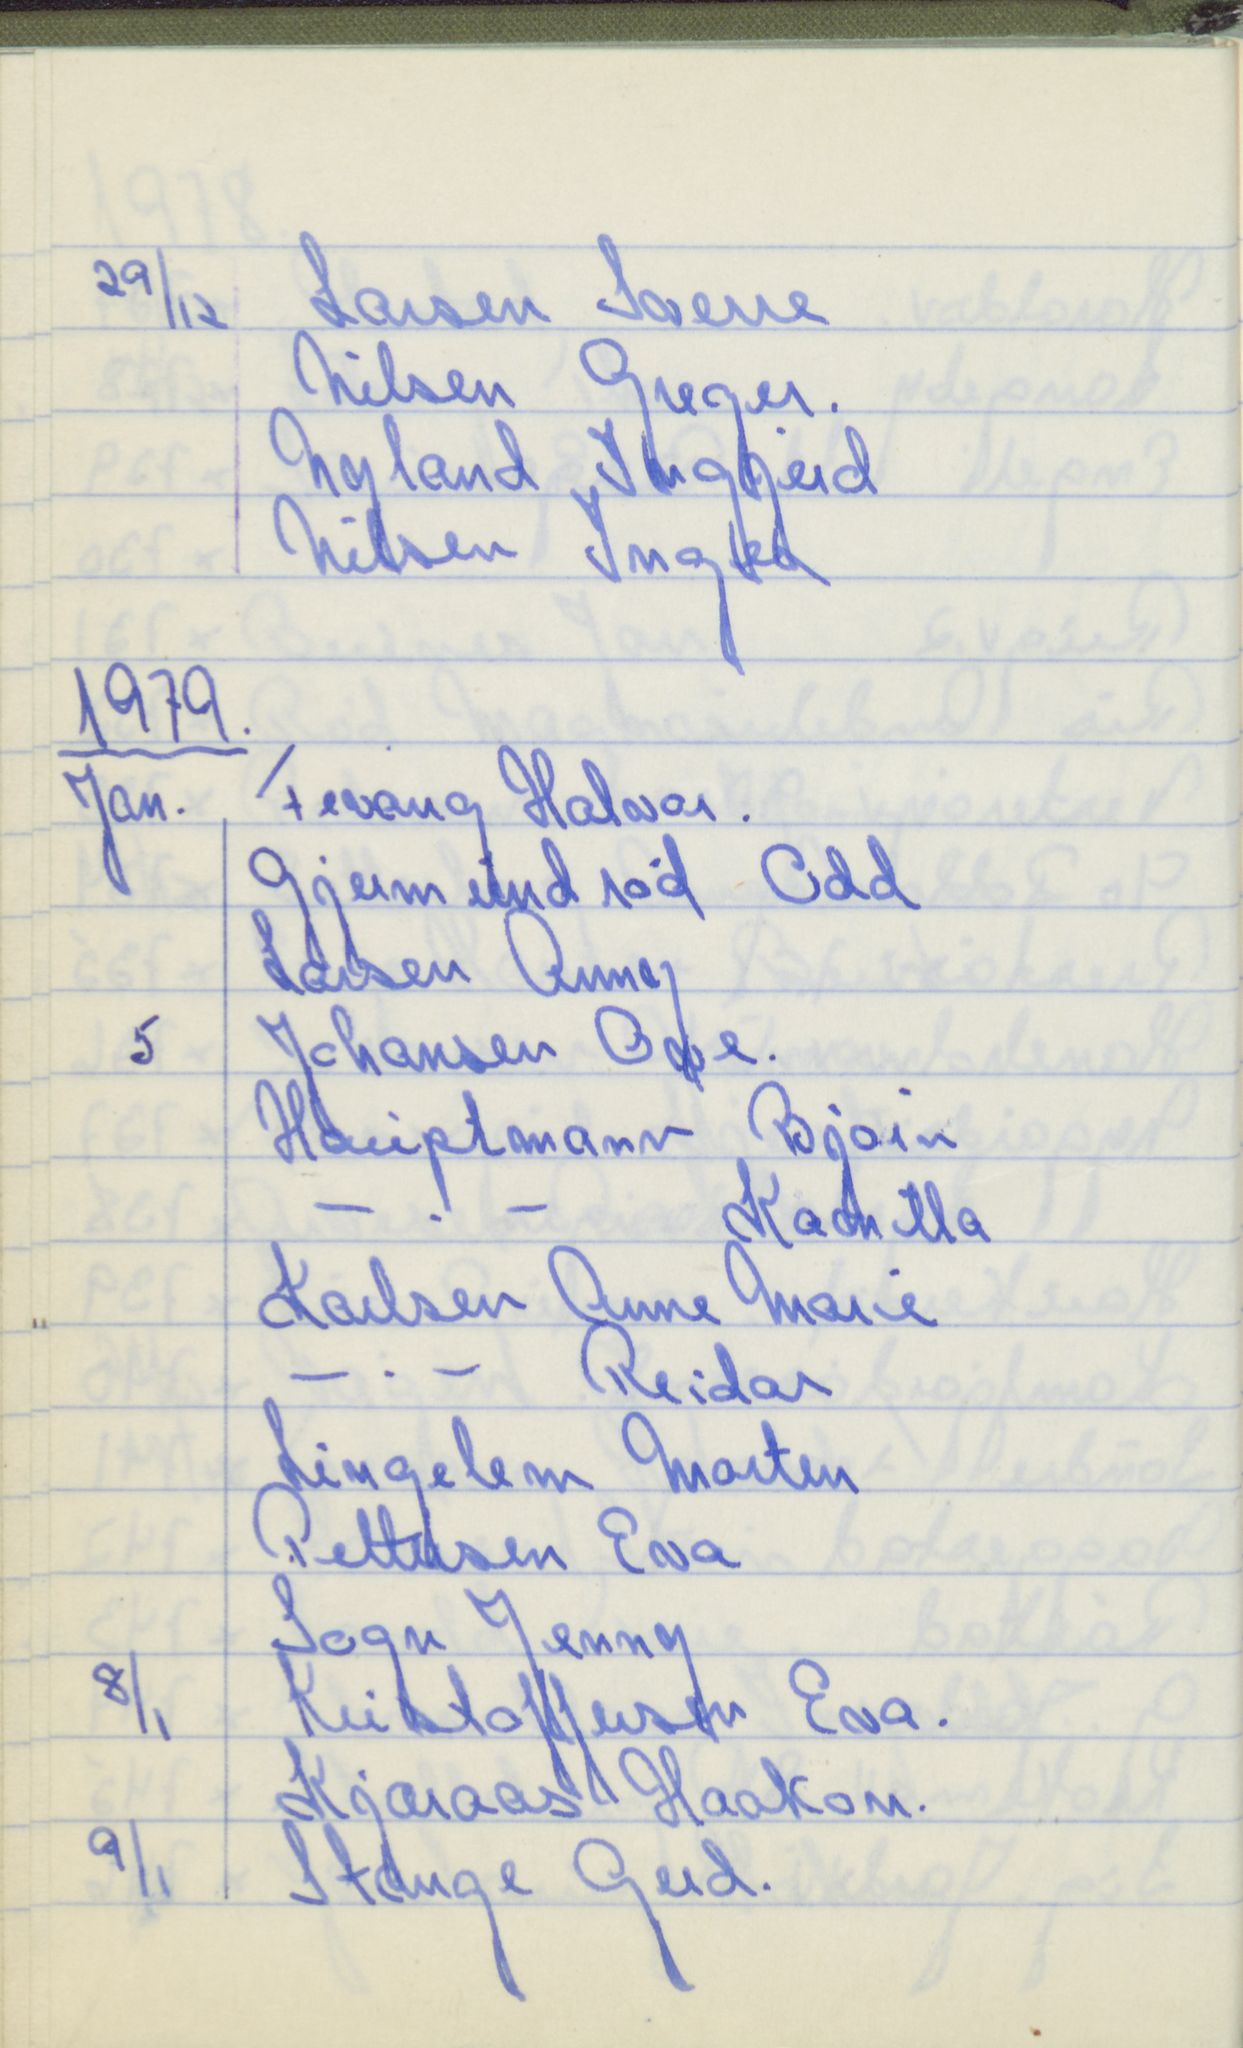 29/12 Larsen Sverre
Nilsen Greger.
Nyland Inggjerd
Nilsen Inger
1979.
Jan. Fevang Halvar.
Gjermundrød Odd
Larsen Anny
5 Johansen Ove.
Hauptmann Bjørn
— . — Kamilla
Karlsen Anne Marie
— . — Reidar
Lingelem Morten
Pettersen Eva
Sogn Jenny
8/1 Kristoffersen Eva.
Kjæraas Haakon.
9/1 Stange Gerd.